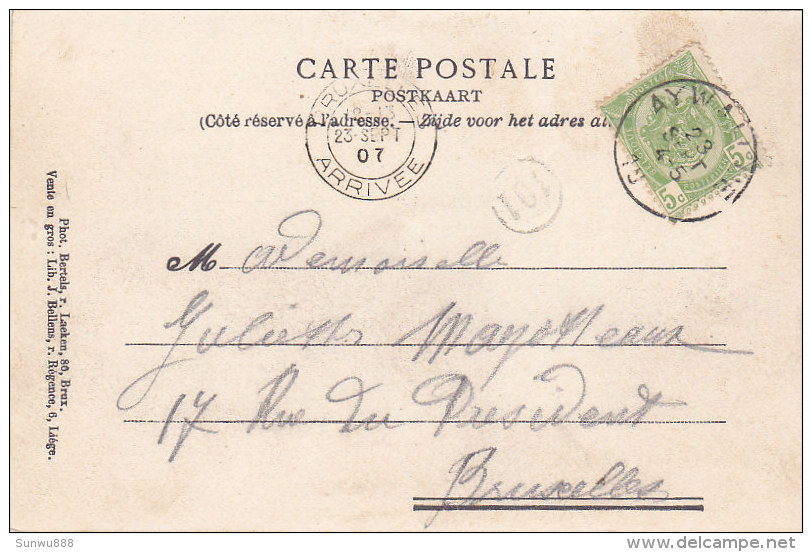 CARTE POSTALE
POSTKAART
(Côté réservé à l'adresse. — Zijde voor het adres
23 SEPT
07
ARRIVÉE
AYWA
23
SEPT
5c
5c
101
Mademoiselle
Juliette Mayolleaux
17 Rue du President
Bruxelles
Phot. Bertels, r. Laeken, 80, Brux.
Vente en gros : Lib. J. Bellens, r. Régence, 6, Liége.
Sunwu888
delcampe.net